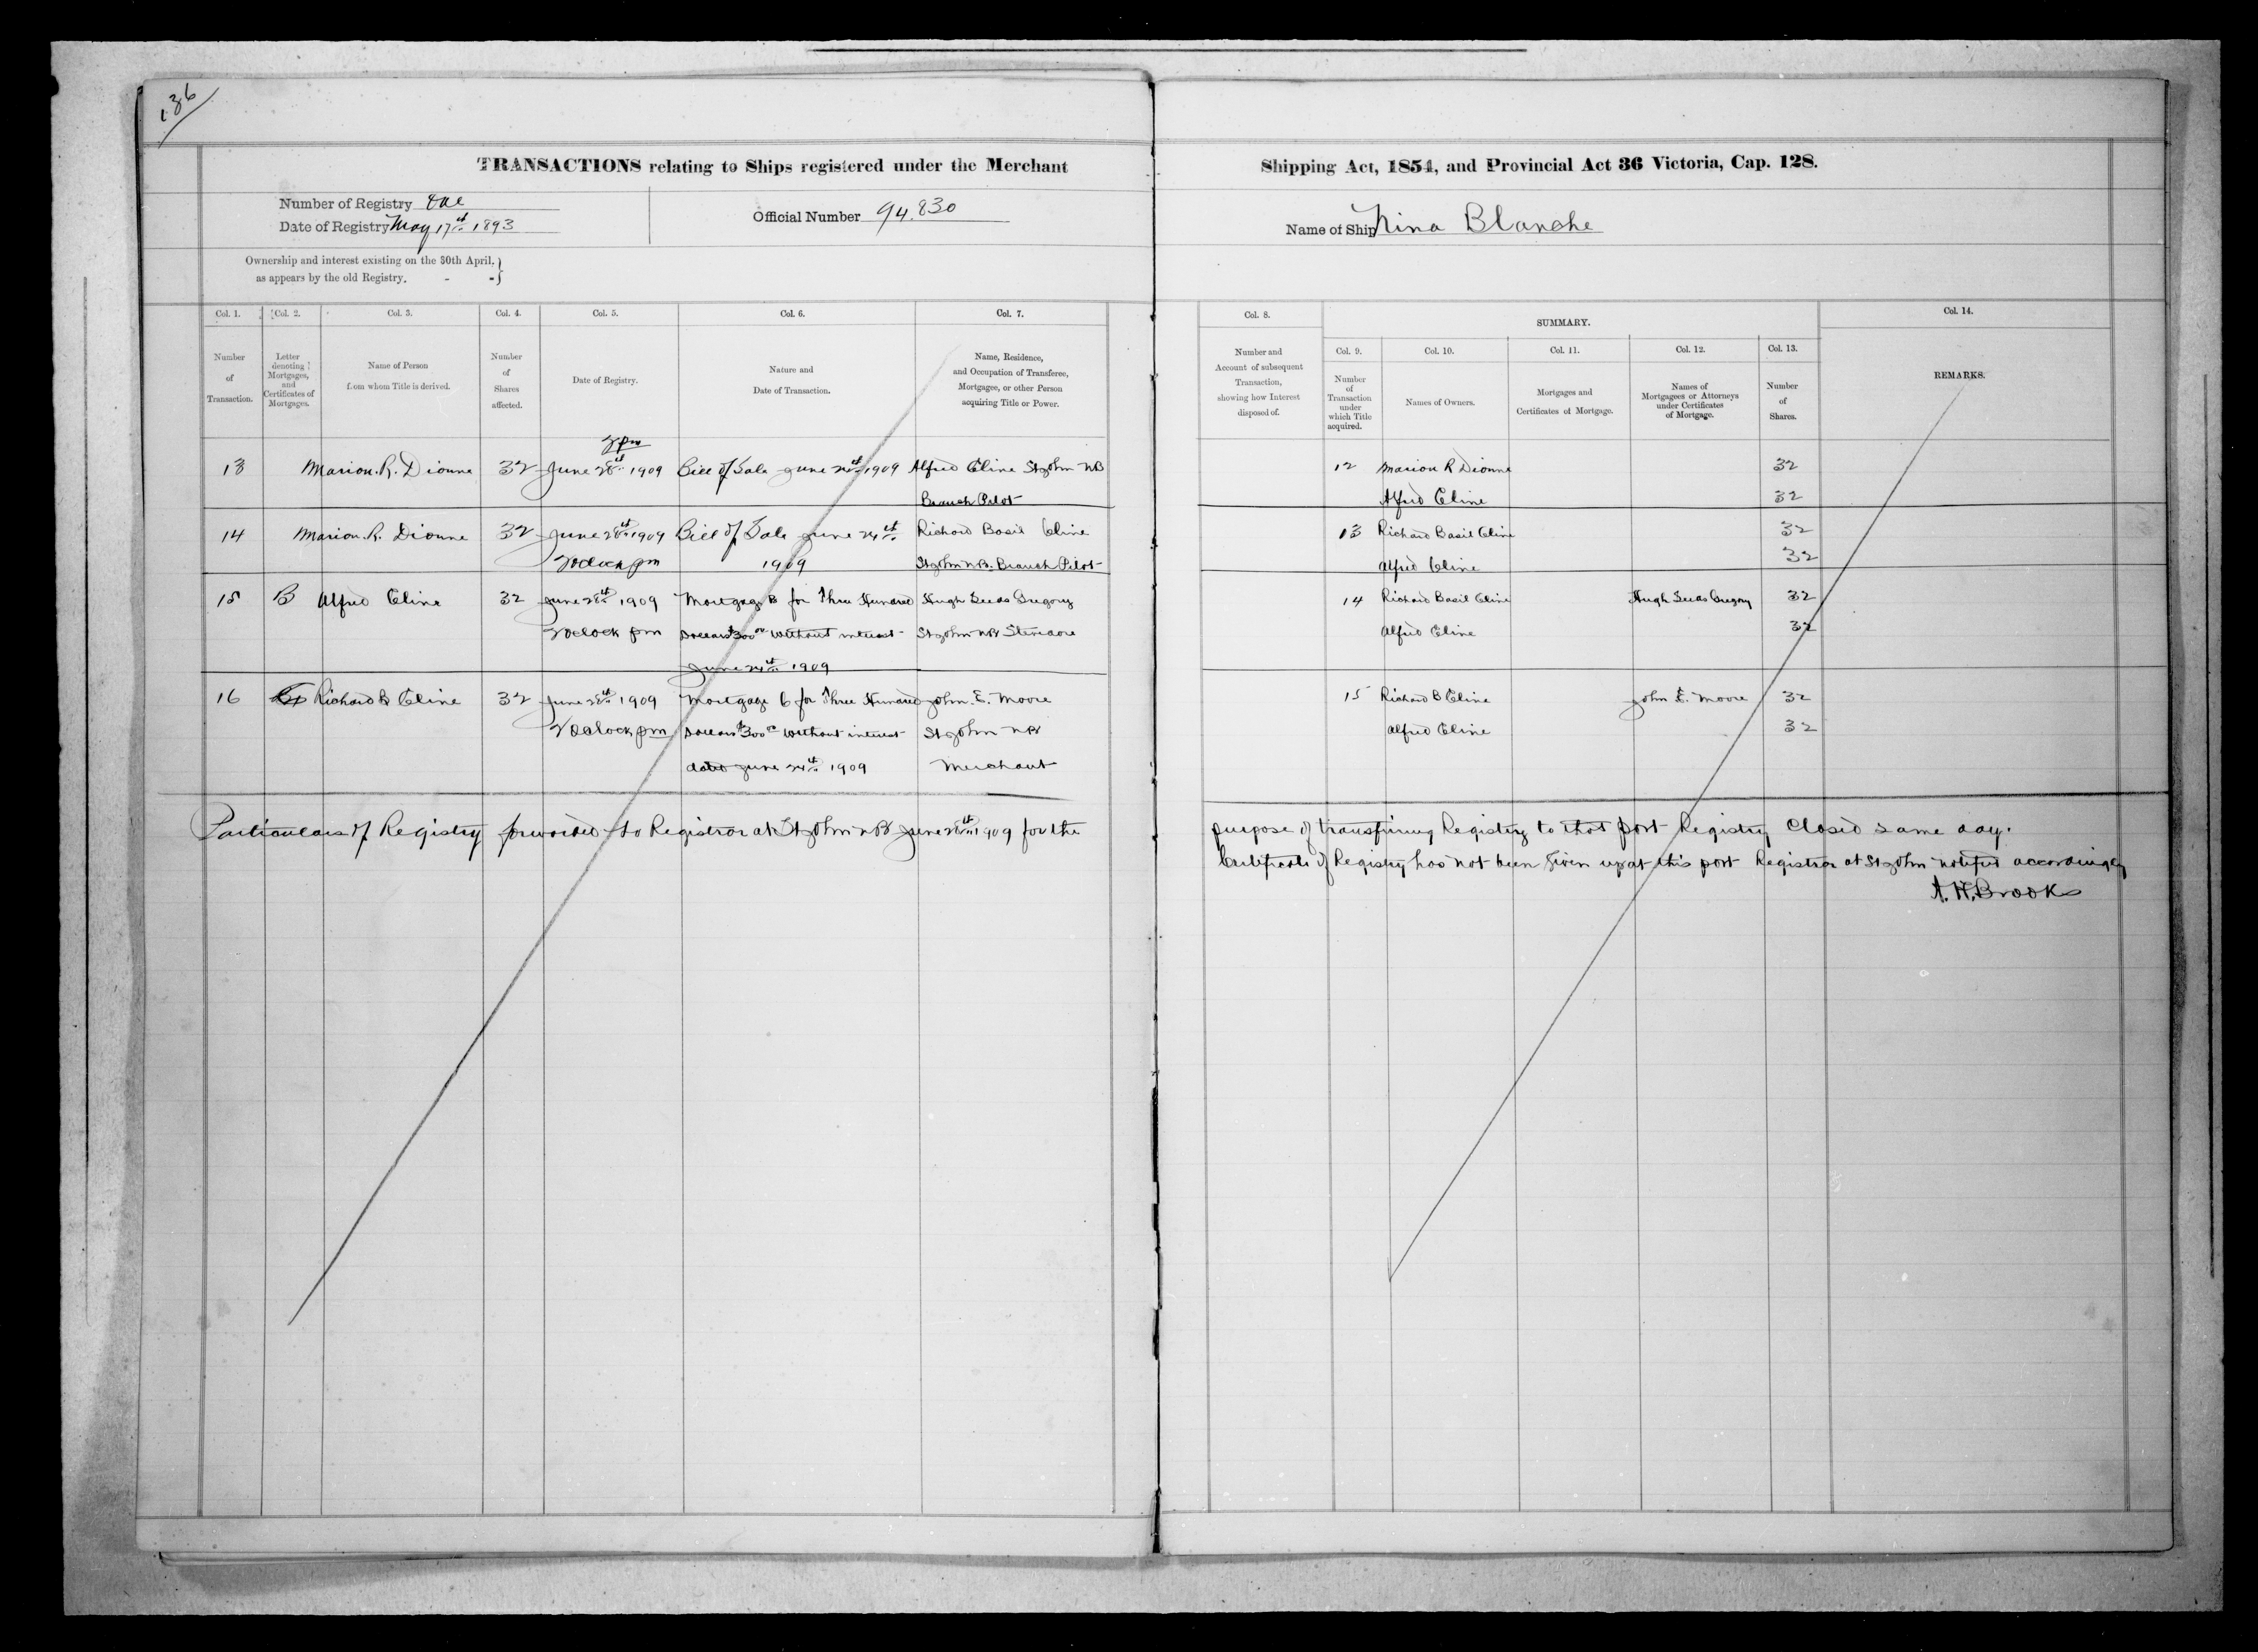 136
TRANSACTIONS relating to Ships registered under the Merchant Shipping Act, 1854, and Provincial Act 36 Victoria, Cap. 128.
Number of Registry One
Date of Registry May 17th 1893
Official Number 94.830
Name of Ship Nina Blanche
Ownership and interest existing on the 30th April,
as appears by the old Registry. - -
Col. 1. Col. 2. Col. 3. Col. 4. Col. 5. Col. 6. Col. 7. Col. 8. SUMMARY. Col. 14.
Col. 9. Col. 10. Col. 11. Col. 12. Col. 13.
Number of Transaction.
Letter denoting Mortgages, and Certificates of Mortgages.
Name of Person from whom Title is derived.
Number of Shares affected.
Date of Registry.
Nature and Date of Transaction.
Name, Residence, and Occupation of Transferee, Mortgagee, or other Person acquiring Title or Power.
Number and Account of subsequent Transaction, showing how Interest disposed of.
Number of Transaction under which Title acquired.
Names of Owners.
Mortgages and Certificates of Mortgage.
Names of Mortgagees or Attorneys under Certificates of Mortgage.
Number of Shares.
REMARKS.
2 pm
13 Marion. R. Dionne 32 June 28th 1909 Bill of Sale June 24th 1909 Alfred Cline St John NB 12 Marion R Dionne 32
Branch Pilot Alfred Cline 32
14 Marion. R. Dionne 32 June 28th 1909 Bill of Sale June 24th Richard Basil Cline 13 Richard Basil Cline 32
2 oclock pm 1909 St John N.B. Branch Pilot Alfred Cline 32
15 B Alfred Cline 32 June 28th 1909 Mortgage B for Three Hundred Hugh Seeds Gregory 14 Richard Basil Cline Hugh Seeds Gregory 32
2 oclock pm Dollars $300 00 without interest St John NB Stevedore Alfred Cline 32
June 24th 1909
16 Richard B Cline 32 June 28th 1909 Mortgage C for Three Hundred John. E. Moore 15 Richard B Cline John E. Moore 32
2 Oclock pm Dollars $300 00 without interest St John NB Alfred Cline 32
dated June 24th 1909 Merchant
Particulars of Registry forwarded to Registrar at St John NB June 28th 1909 for the purpose of transfiring Registry to that port Registry Closed same day.
Certificate of Registry has not been given up at this port Registrar at St John notified accordingly
A. H. Brooks